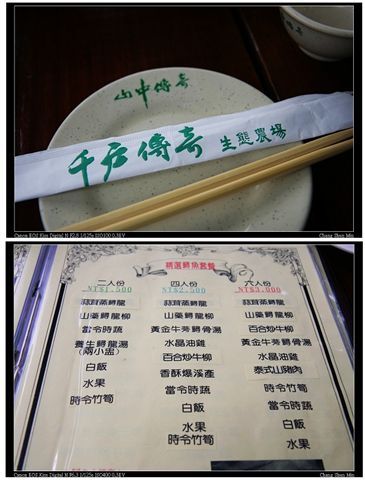 山中傳奇
千戶傳奇 生態農場
Canon EOS Kiss Digital N F2.8 1/125s ISO100 0.3EV
Chang Shun Min
精選鱘魚套餐
二人份
NT$1,500
蒜茸蒸鱘龍
山藥鱘龍柳
當令時蔬
養生鱘龍湯
(兩小盅)
白飯
水果
時令竹筍
四人份
NT$2,500
蒜茸蒸鱘龍
山藥鱘龍柳
黃金牛蒡鱘骨湯
水晶油雞
百合炒牛柳
香酥爆溪產
時令竹筍
當令時蔬
白飯
水果
時令竹筍
六人份
NT$3,000
蒜茸蒸鱘龍
山藥鱘龍柳
百合炒牛柳
黃金牛蒡鱘骨湯
水晶油雞
泰式山豬肉
時令竹筍
當令時蔬
白飯
水果